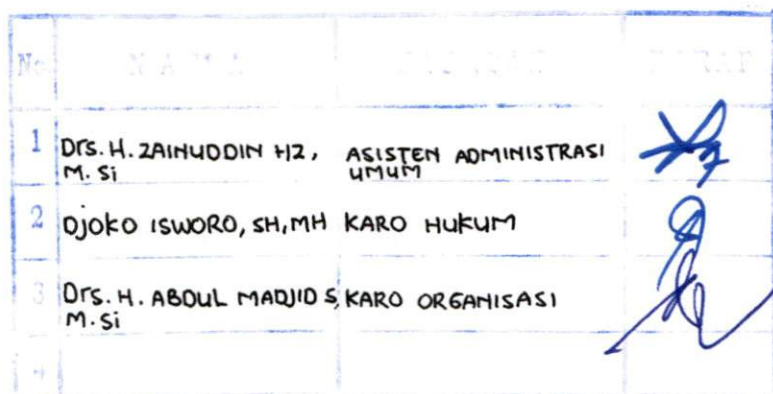 No N A M A JABATAN PARAF
1 Drs. H. ZAINUDDIN HZ, ASISTEN ADMINISTRASI
M. Si UMUM
2 DJOKO ISWORO, SH, MH KARO HUKUM
3 Drs. H. ABDUL MADJID S, KARO ORGANISASI
M. Si
4